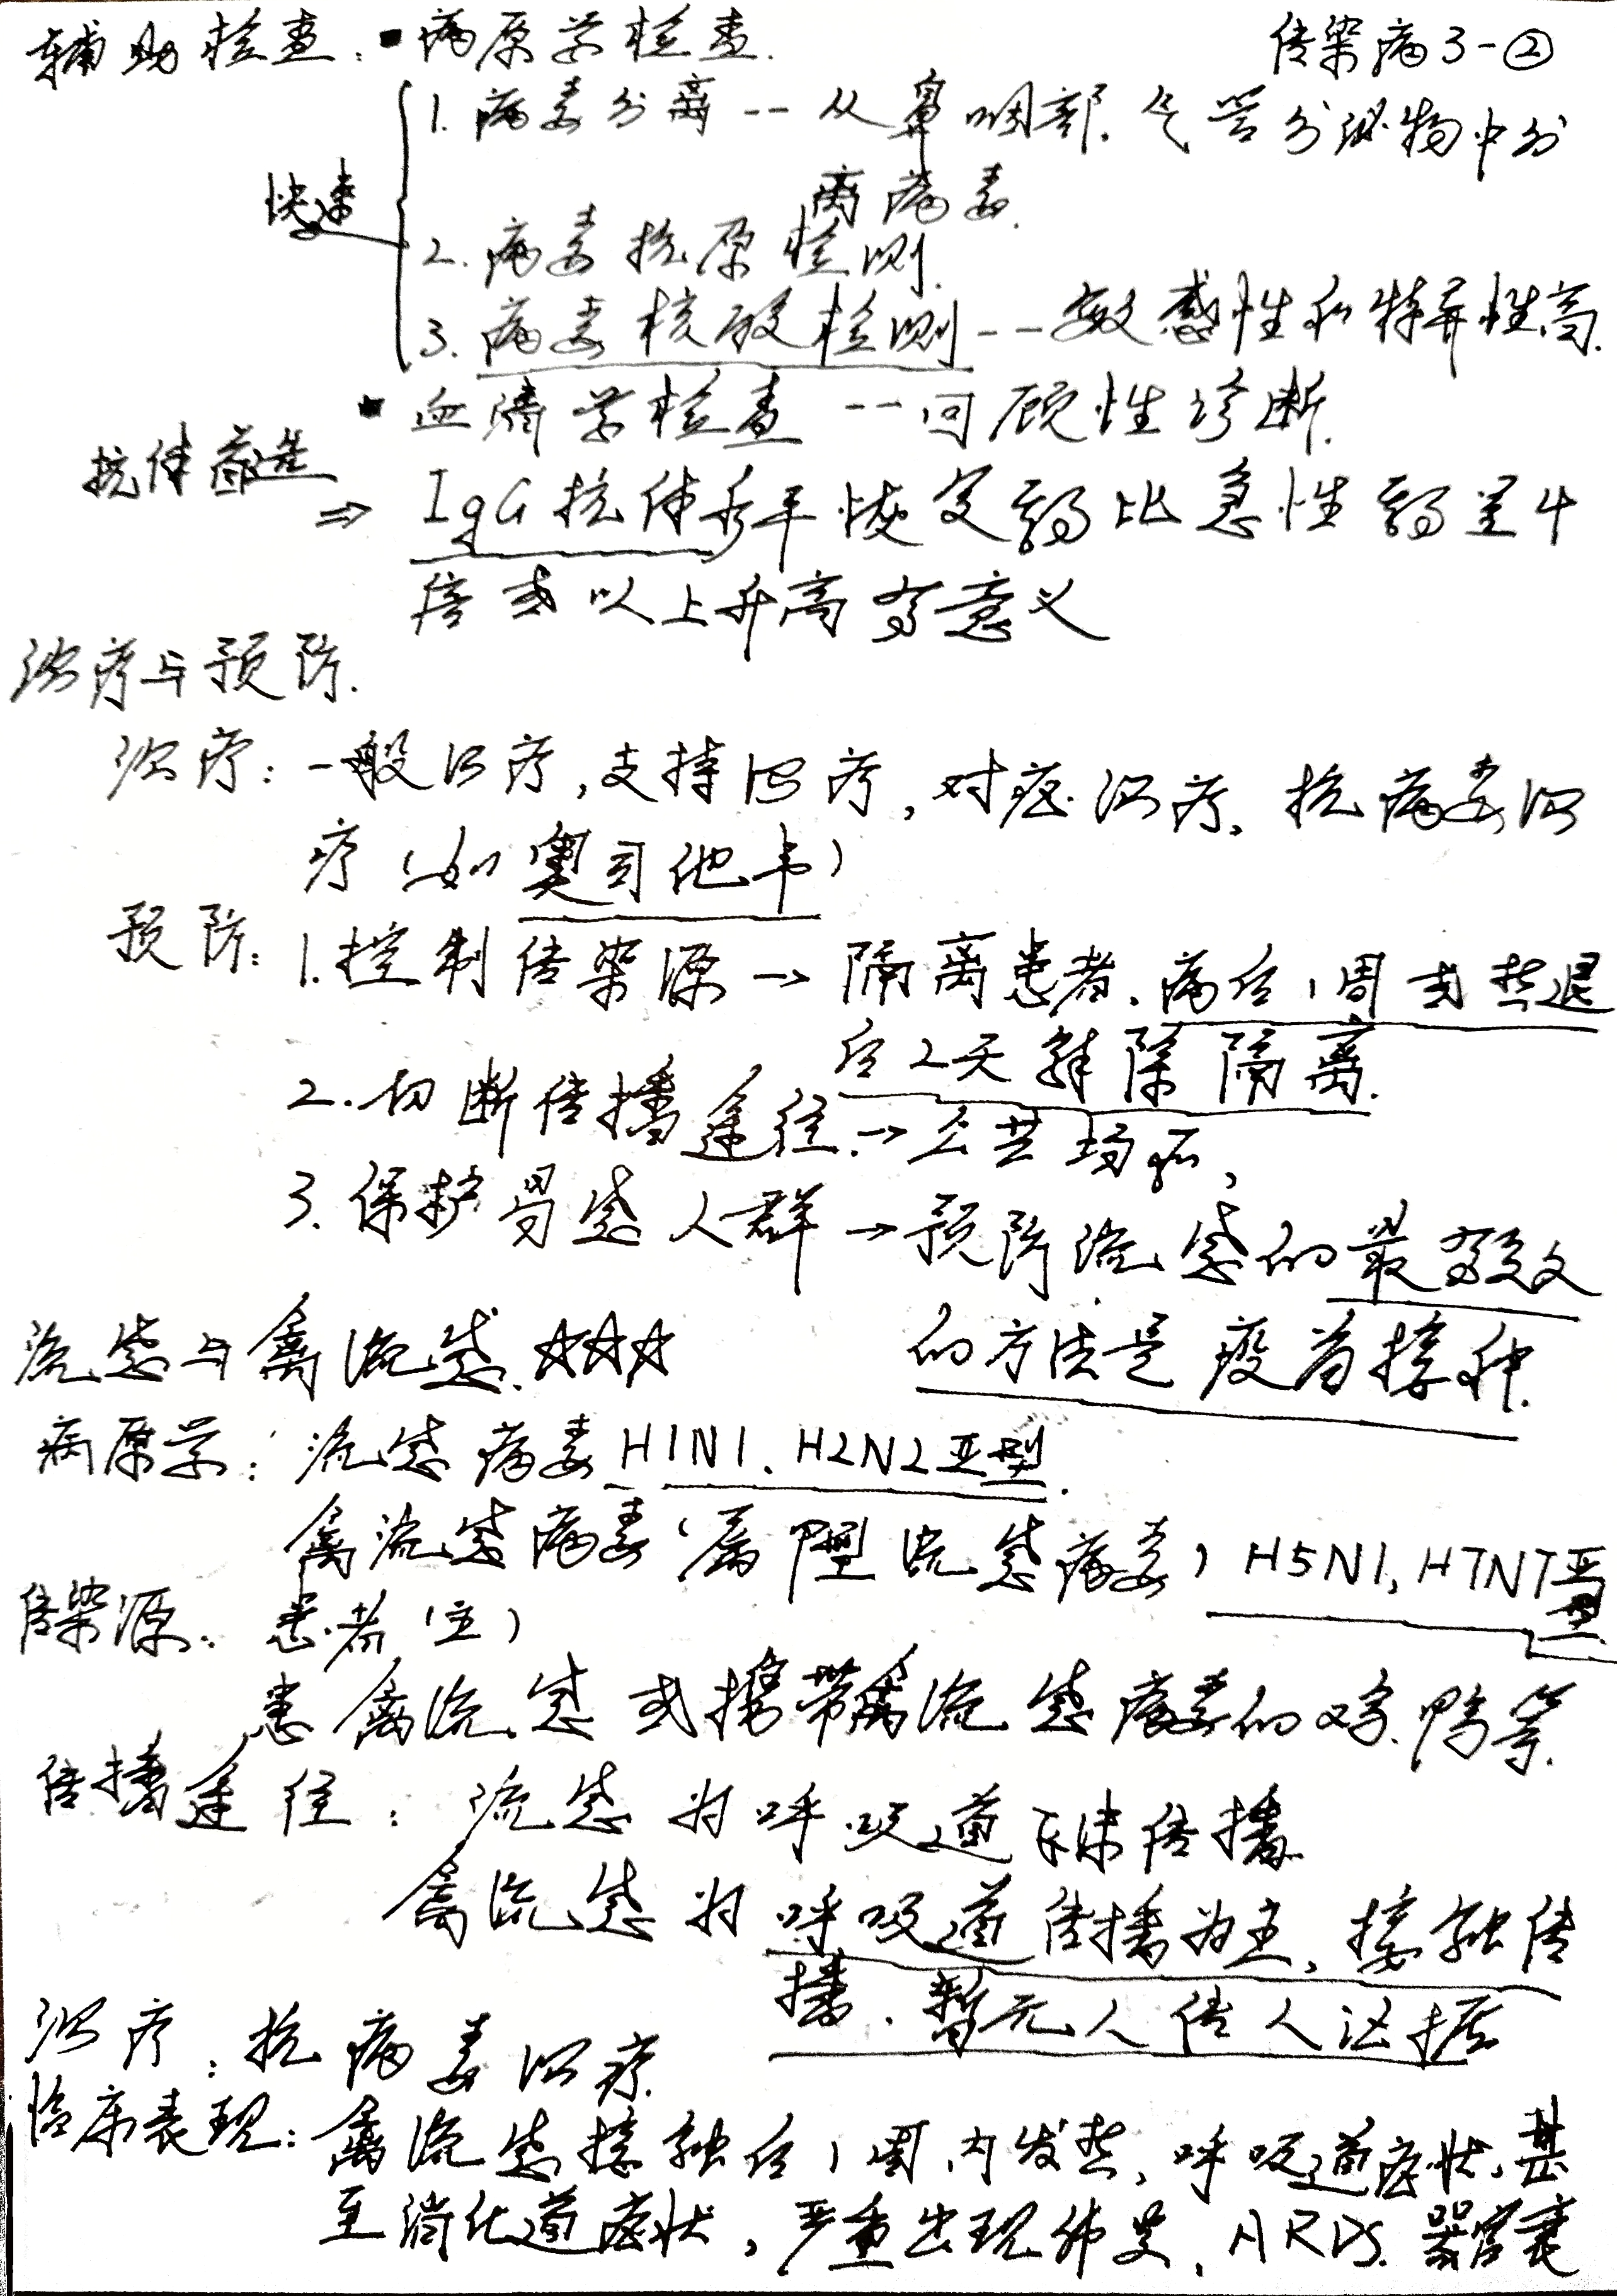 传染病3-②
辅助检查：▪病原学检查.
1. 病毒分离 -- 从鼻咽部、气管分泌物中分
离病毒.
快速
2. 病毒抗原检测.
3. 病毒核酸检测 -- 敏感性和特异性高.
▪ 血清学检查 -- 回顾性诊断.
抗体
⇒ IgG抗体水平恢复期比急性期呈4
倍或以上升高有意义
治疗与预防.
治疗：一般治疗，支持治疗，对症治疗，抗病毒治
疗（如奥司他韦）
预防：1.控制传染源→隔离患者、病后1周或热退
后2天解除隔离.
2.切断传播途径.→公共场所，
3.保护易感人群→预防流感的最有效
的方法是疫苗接种.
流感与禽流感.☆☆☆
病原学：流感病毒H1N1、H2N2亚型.
禽流感病毒（属甲型流感病毒）H5N1、H7N7亚型
传染源：患者（主）
患禽流感或携带禽流感病毒的鸡.鸭等.
传播途径：流感为呼吸道飞沫传播
禽流感为呼吸道传播为主、接触传
播、暂无人传人证据
治疗：抗病毒治疗.
临床表现：禽流感接触后1周内发热、呼吸道症状、甚
至消化道症状，严重出现肺炎、ARDS.器官衰